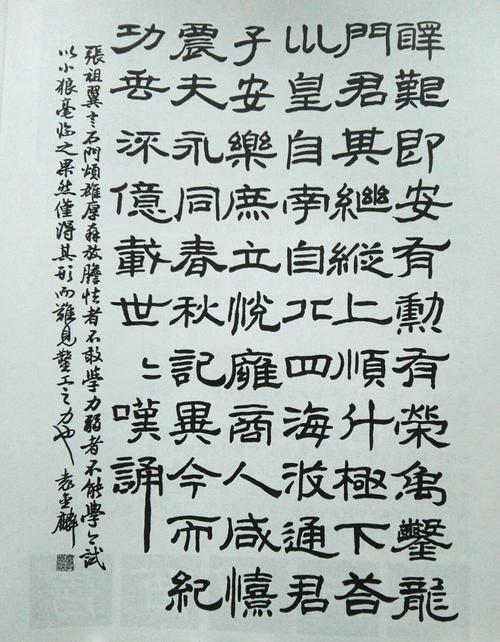 釋艱即安有勳有榮禹鑿龍
門君其繼縱上順什極下荅
巛皇自南自北四海攸通君
子安樂庶士悅廱商人咸憘
農夫永同春秋記異今而紀
功垂流億載世〻嘆誦
張祖翼言石門頌雄厚奔放膽怯者不敢學力弱者不能學〻試
以小狼毫臨之果然僅得其形而難見鑿工之力也